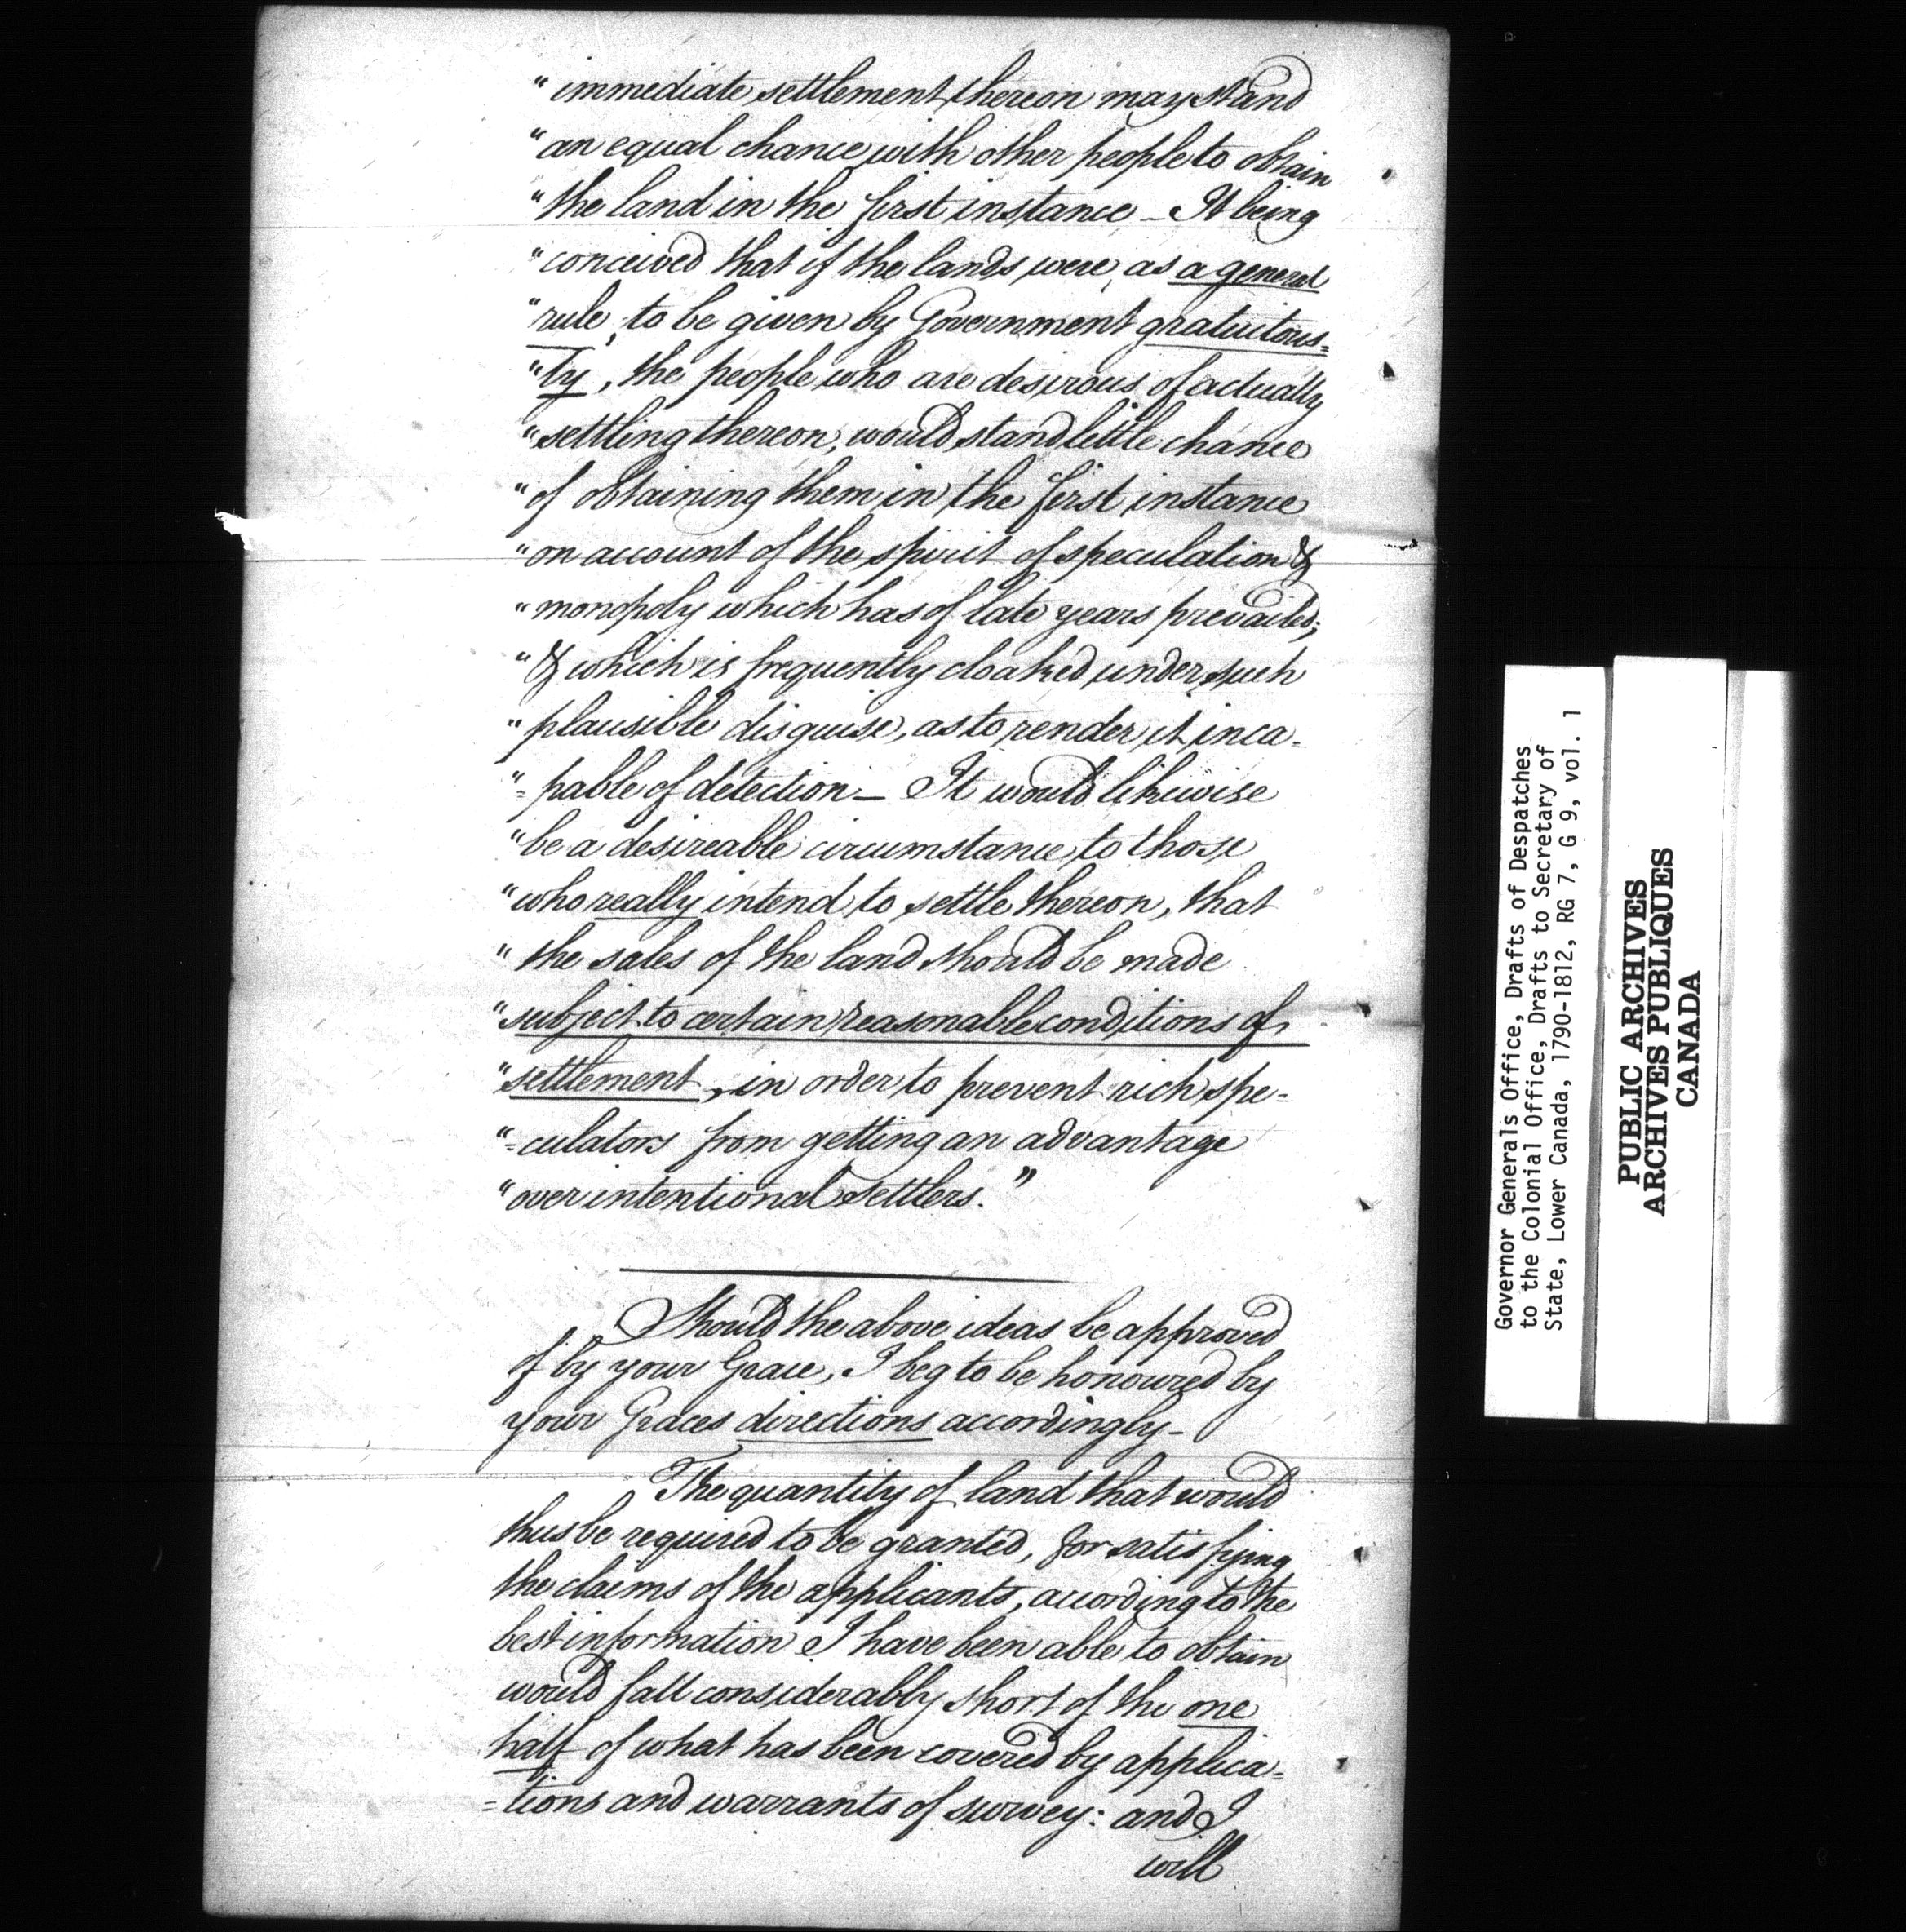 “immediate settlement thereon may stand
“an equal chance with other people to obtain
“the land in the first instance — It being
“conceived that if the lands were, as a general
“rule, to be given by Government gratuitous=
“ly, the people who are desirous of actually
“settling thereon, would stand little chance
“of obtaining them in the first instance
“on account of the spirit of speculation &
“monopoly which has of late years prevailed;
“& which is frequently cloaked under such
“plausible disguise, as to render it inca-
“=pable of detection — It would likewise
“be a desireable circumstance to those
“who really intend to settle thereon, that
“the sales of the land should be made
“subject to certain reasonable conditions of
“settlement, in order to prevent rich spe-
“=culators from getting an advantage
“over intentional settlers.”
Should the above ideas be approved
of by your Grace, I beg to be honoured by
your Graces directions accordingly —
The quantity of land that would
thus be required to be granted, for satisfying
the claims of the applicants, according to the
best information I have been able to obtain
would fall considerably short of the one
half of what has been covered by applica=
=tions and warrants of survey: and I
will
Governor Generals Office, Drafts of Despatches
to the Colonial Office, Drafts to Secretary of
State, Lower Canada, 1790-1812, RG 7, G 9, vol. 1
PUBLIC ARCHIVES
ARCHIVES PUBLIQUES
CANADA